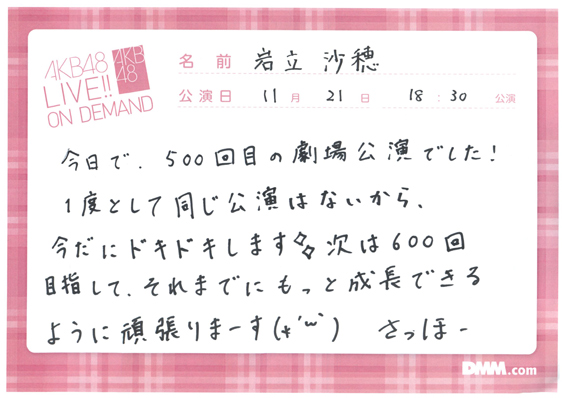 AKB48
LIVE!!
ON DEMAND
AKB
48
名前 岩立 沙穂
公演日 11月 21日 18:30 公演
今日で、500回目の劇場公演でした!
1度として同じ公演はないから、
今だにドキドキします 次は600回
目指して、それまでにもっと成長できる
ように頑張りまーす(+'ω') さっほー
DMM.com